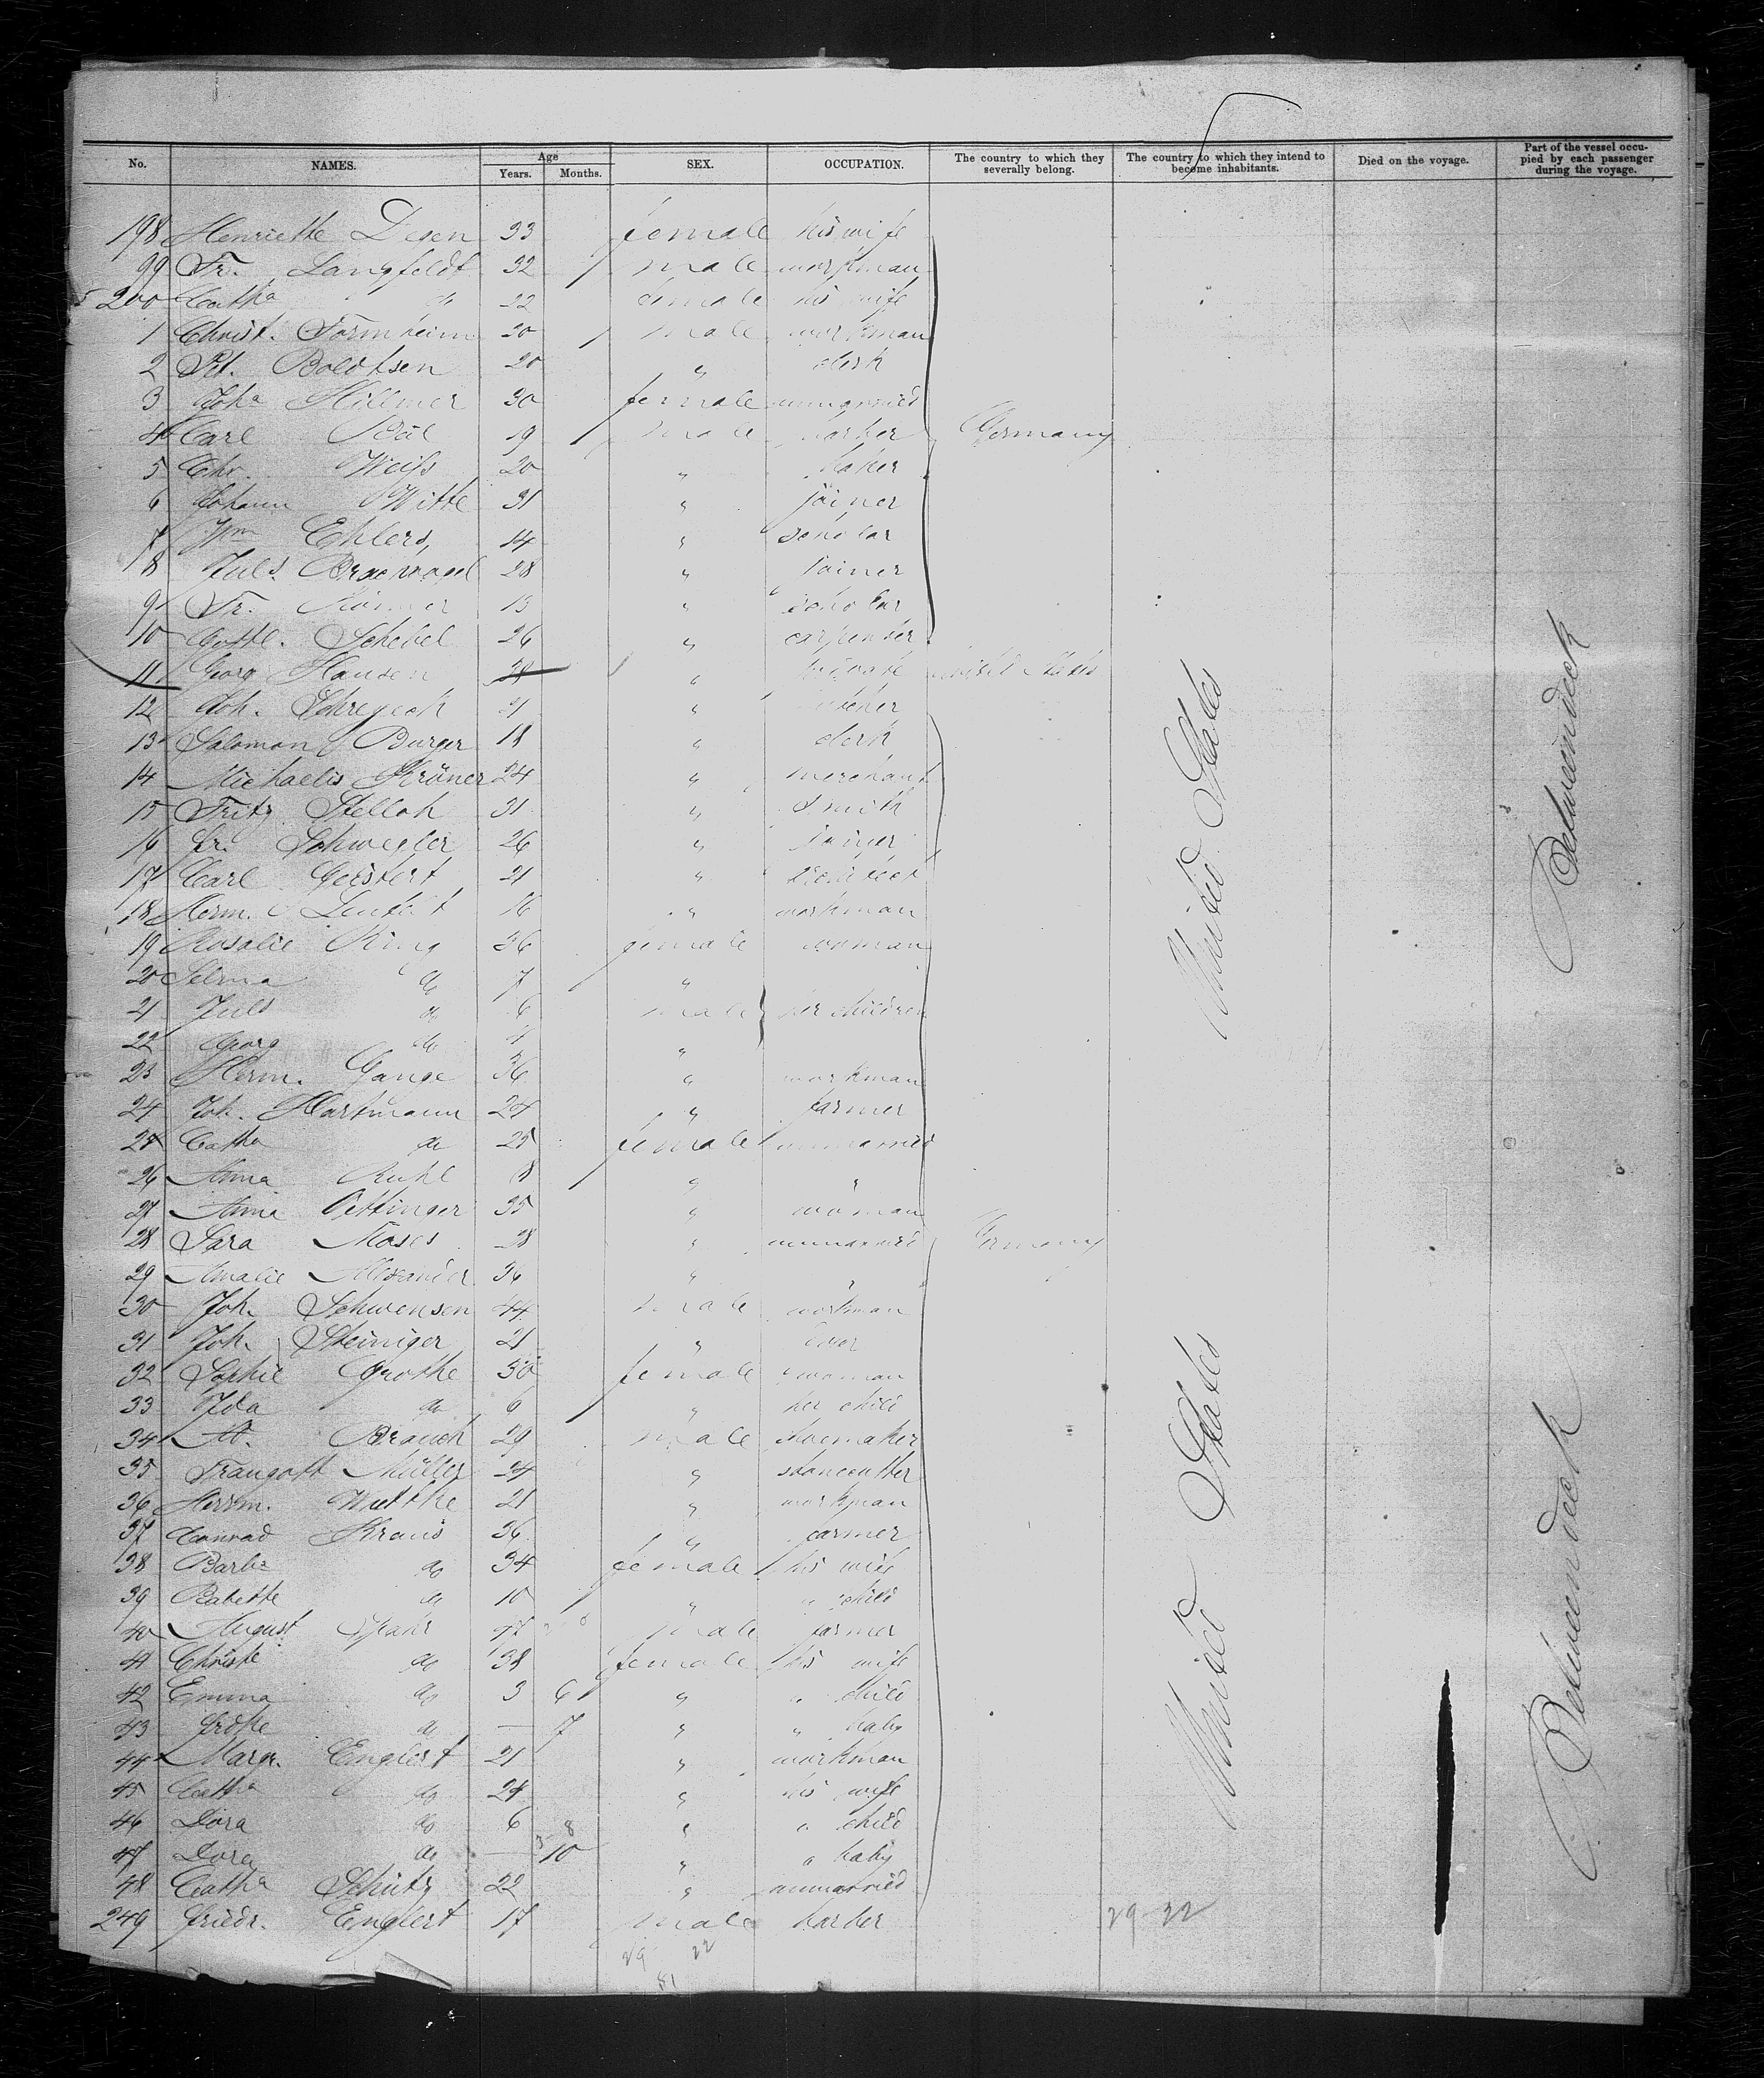 No. NAMES. Age Years. Months. SEX. OCCUPATION. The country to which they severally belong. The country to which they intend to become inhabitants. Died on the voyage. Part of the vessel occupied by each passenger during the voyage.
198 Henriette Desen 33 female his wife
99 Fr. Langfeldt 32 male workman
200 Catha do 22 female his wife
1 Christ. Sormheim 20 male workman
2 Pet. Boldtsen 20 " clerk
3 Joha Hillmer 30 female unmarried
4 Carl 19 male barber Germany
5 Chr. Weifs 20 " baker
6 Johann Witte 31 " joiner
7 Wm Ehlers, 14 " scholar
8 Juls. Brachvogel 28 " joiner
9 Fr. Körner 13 " scholar
10 Gottl. Schebel 26 " carpenter
11 Georg Hansen " private United States
12 Joh. Schreyeck 21 "
13 Salomon Burger 18 " clerk
14 Michaelis Kröner 24 " merchant
15 Fritz Stelloh 31 " smith
16 Fr. Schwegler 26 " joiner
17 Carl Geistert 21 "
18 Herm. 16 " workman
19 Rosalie King 36 female woman
20 Selma do 7 "
21 Juls do 6 male her children
22 Georg do 4 "
23 Herm. Gange 36 " workman
24 Joh. Hartmann 24 " farmer
25 Catha do 25 female unmarried
26 Anna Ruhl 18 " "
27 Anna Oettinger 35 " woman
28 Sara Moses 28 " unmarried Germany
29 Amalie Alexander 36 " "
30 Joh. Schwensen 44 male workman
31 Joh. Steiniger 21 "
32 Sophie Grothe 30 female woman
33 Ida do 6 " her child
34 A. Brauch 29 male shoemaker
35 Traugott Müller 24 " stonecutter
36 Herrm. Wuthke 21 " workman
37 Conrad Kraus 36 " farmer
38 Barba do 34 female his wife
39 Babette do 10 " " child
40 August Spahr 47 male farmer
41 Christe do 38 female his wife
42 Emma do 3 6 " " child
43 do — 7 " " baby
44 Marg. Englert 21 " workman
45 Catha do 24 " his wife
46 Dora do 6 " " child
47 Dora do — 10 " " baby
48 Catha Schütz 22 " unmarried
249 Friedr. Englert 17 male barber
29 22
29 22
81
United States
United States
Betweendeck
Betweendeck